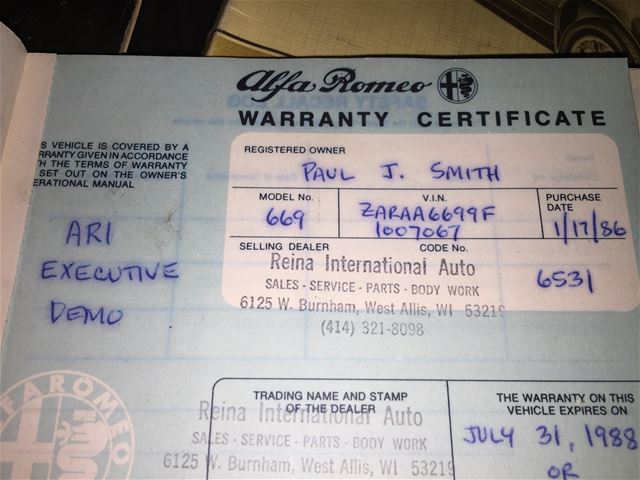 Alfa Romeo
WARRANTY CERTIFICATE
S VEHICLE IS COVERED BY A
RRANTY GIVEN IN ACCORDANCE
H THE TERMS OF WARRANTY
SET OUT ON THE OWNER'S
ERATIONAL MANUAL
ARI
EXECUTIVE
DEMO
REGISTERED OWNER
PAUL J. SMITH
MODEL No.
669
V.I.N.
ZARAA6699F
1007067
PURCHASE
DATE
1/17/86
SELLING DEALER
CODE No.
Reina International Auto
SALES - SERVICE - PARTS - BODY WORK
6125 W. Burnham, West Allis, WI 53219
(414) 321-8098
6531
ALFAROMEO
TRADING NAME AND STAMP
OF THE DEALER
Reina International Auto
SALES - SERVICE - PARTS - BODY WORK
6125 W. Burnham, West Allis, WI 53219
THE WARRANTY ON THIS
VEHICLE EXPIRES ON
JULY 31, 1988
OR